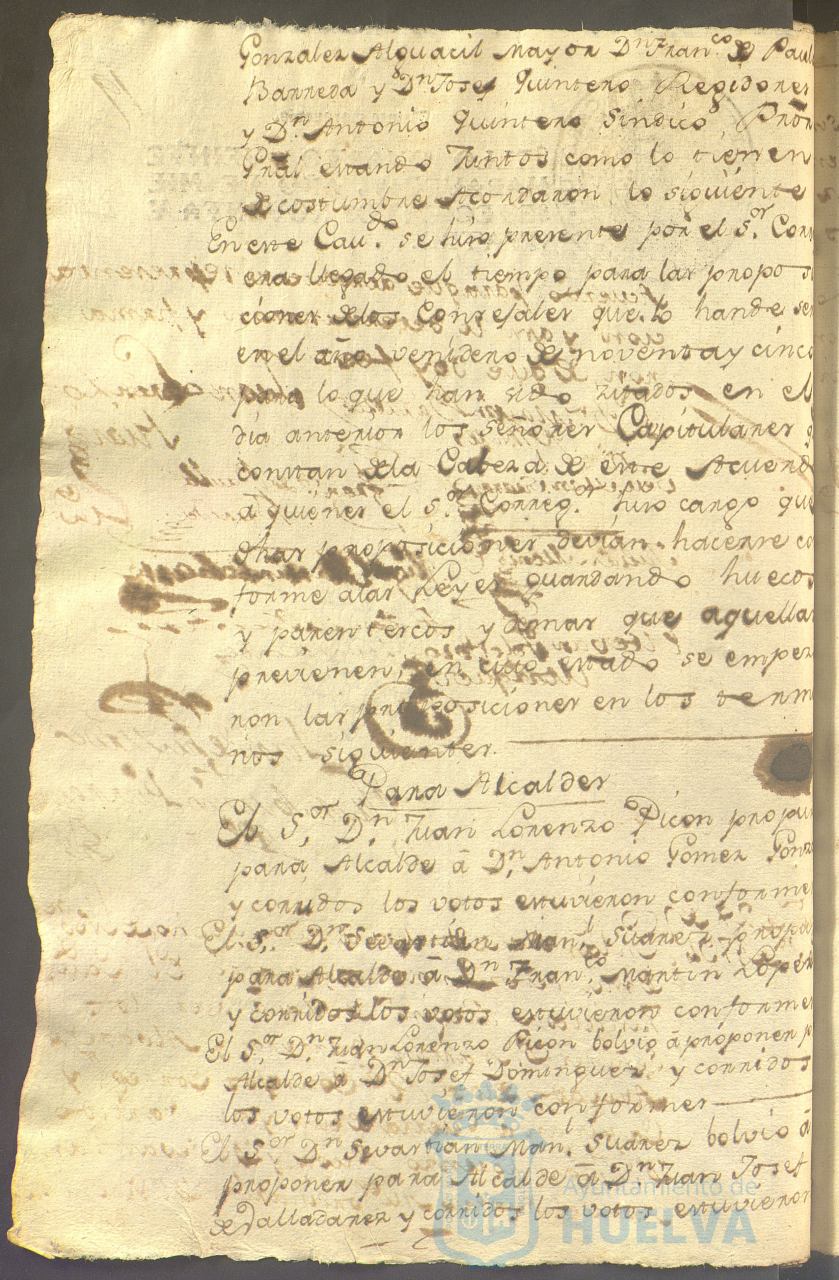 Gonzalez Alguacil Mayor Dn Franco de Paul
Barreda y Dn Josef Quintero Regidores
y Dn Antonio Quintero Sindico Pror
Gral estando Juntos como lo tienen
de costumbre Acordaron lo siguiente
En este Cavdo se hizo presente por el Sor Corr
era llegado el tiempo para las proposi
ciones de los Consejales que lo han de ser
en el año venidero de noventa y cinco
para lo que han sido zitados en el
dia anterior los señores Capitulares q
constan de la Cabeza de este Acuerdo
á quienes el Sor Corregor hizo cargo que
dhas proposiciones devian hacerse co
forme a las Leyes guardando huecos
y parentescos y demas que aquellas
previenen, en cuio estado se empeza
ron las proposiciones en los termi
nos siguientes
Para Alcaldes
El Sor Dn Juan Lorenzo Picon propuso
para Alcalde á Dn Antonio Gomez Gonz
y corridos los votos estuvieron conformes
El Sor Dn Sevastian Manl Suarez propu
para Alcalde á Dn Franco Martin Lopez
y corridos los votos estuvieron conformes
El Sor Dn Juan Lorenzo Picon bolvió á proponer p
Alcalde á Dn Josef Dominguez y corridos
los votos estuvieron conformes
El Sor Dn Sevastian Manl Suarez bolvió á
proponer para Alcalde á Dn Juan Josef
de Valladares y corridos los votos estuvieron
Ayuntamiento de
HUELVA